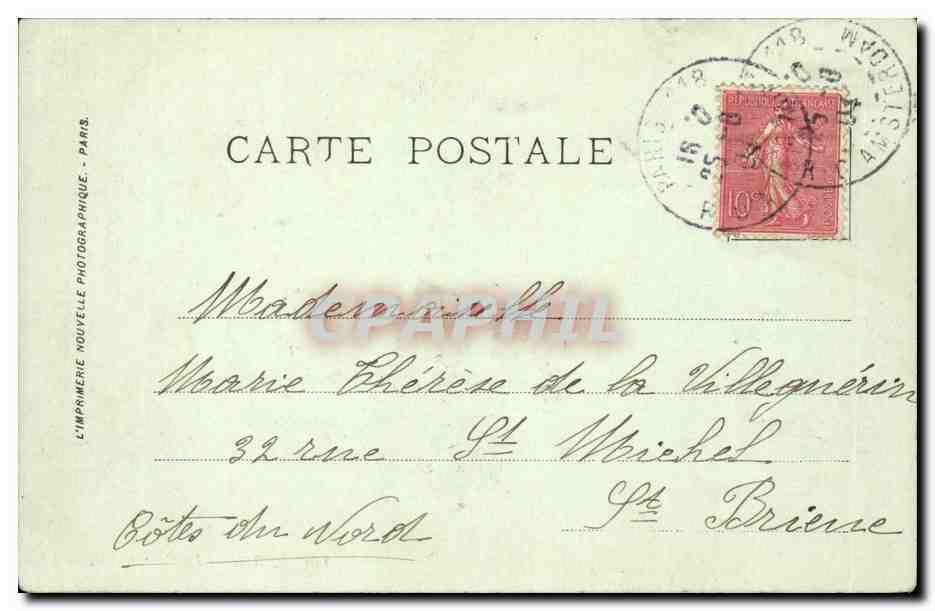 CARTE POSTALE
RÉPUBLIQUE FRANÇAISE
10c
PARIS 118
AMSTERDAM
L'IMPRIMERIE NOUVELLE PHOTOGRAPHIQUE. - PARIS.
CPAPHIL
Mademoiselle
Marie Thérèse de la Villeguérin
32 rue St Michel
St Brieuc
Côtes du Nord